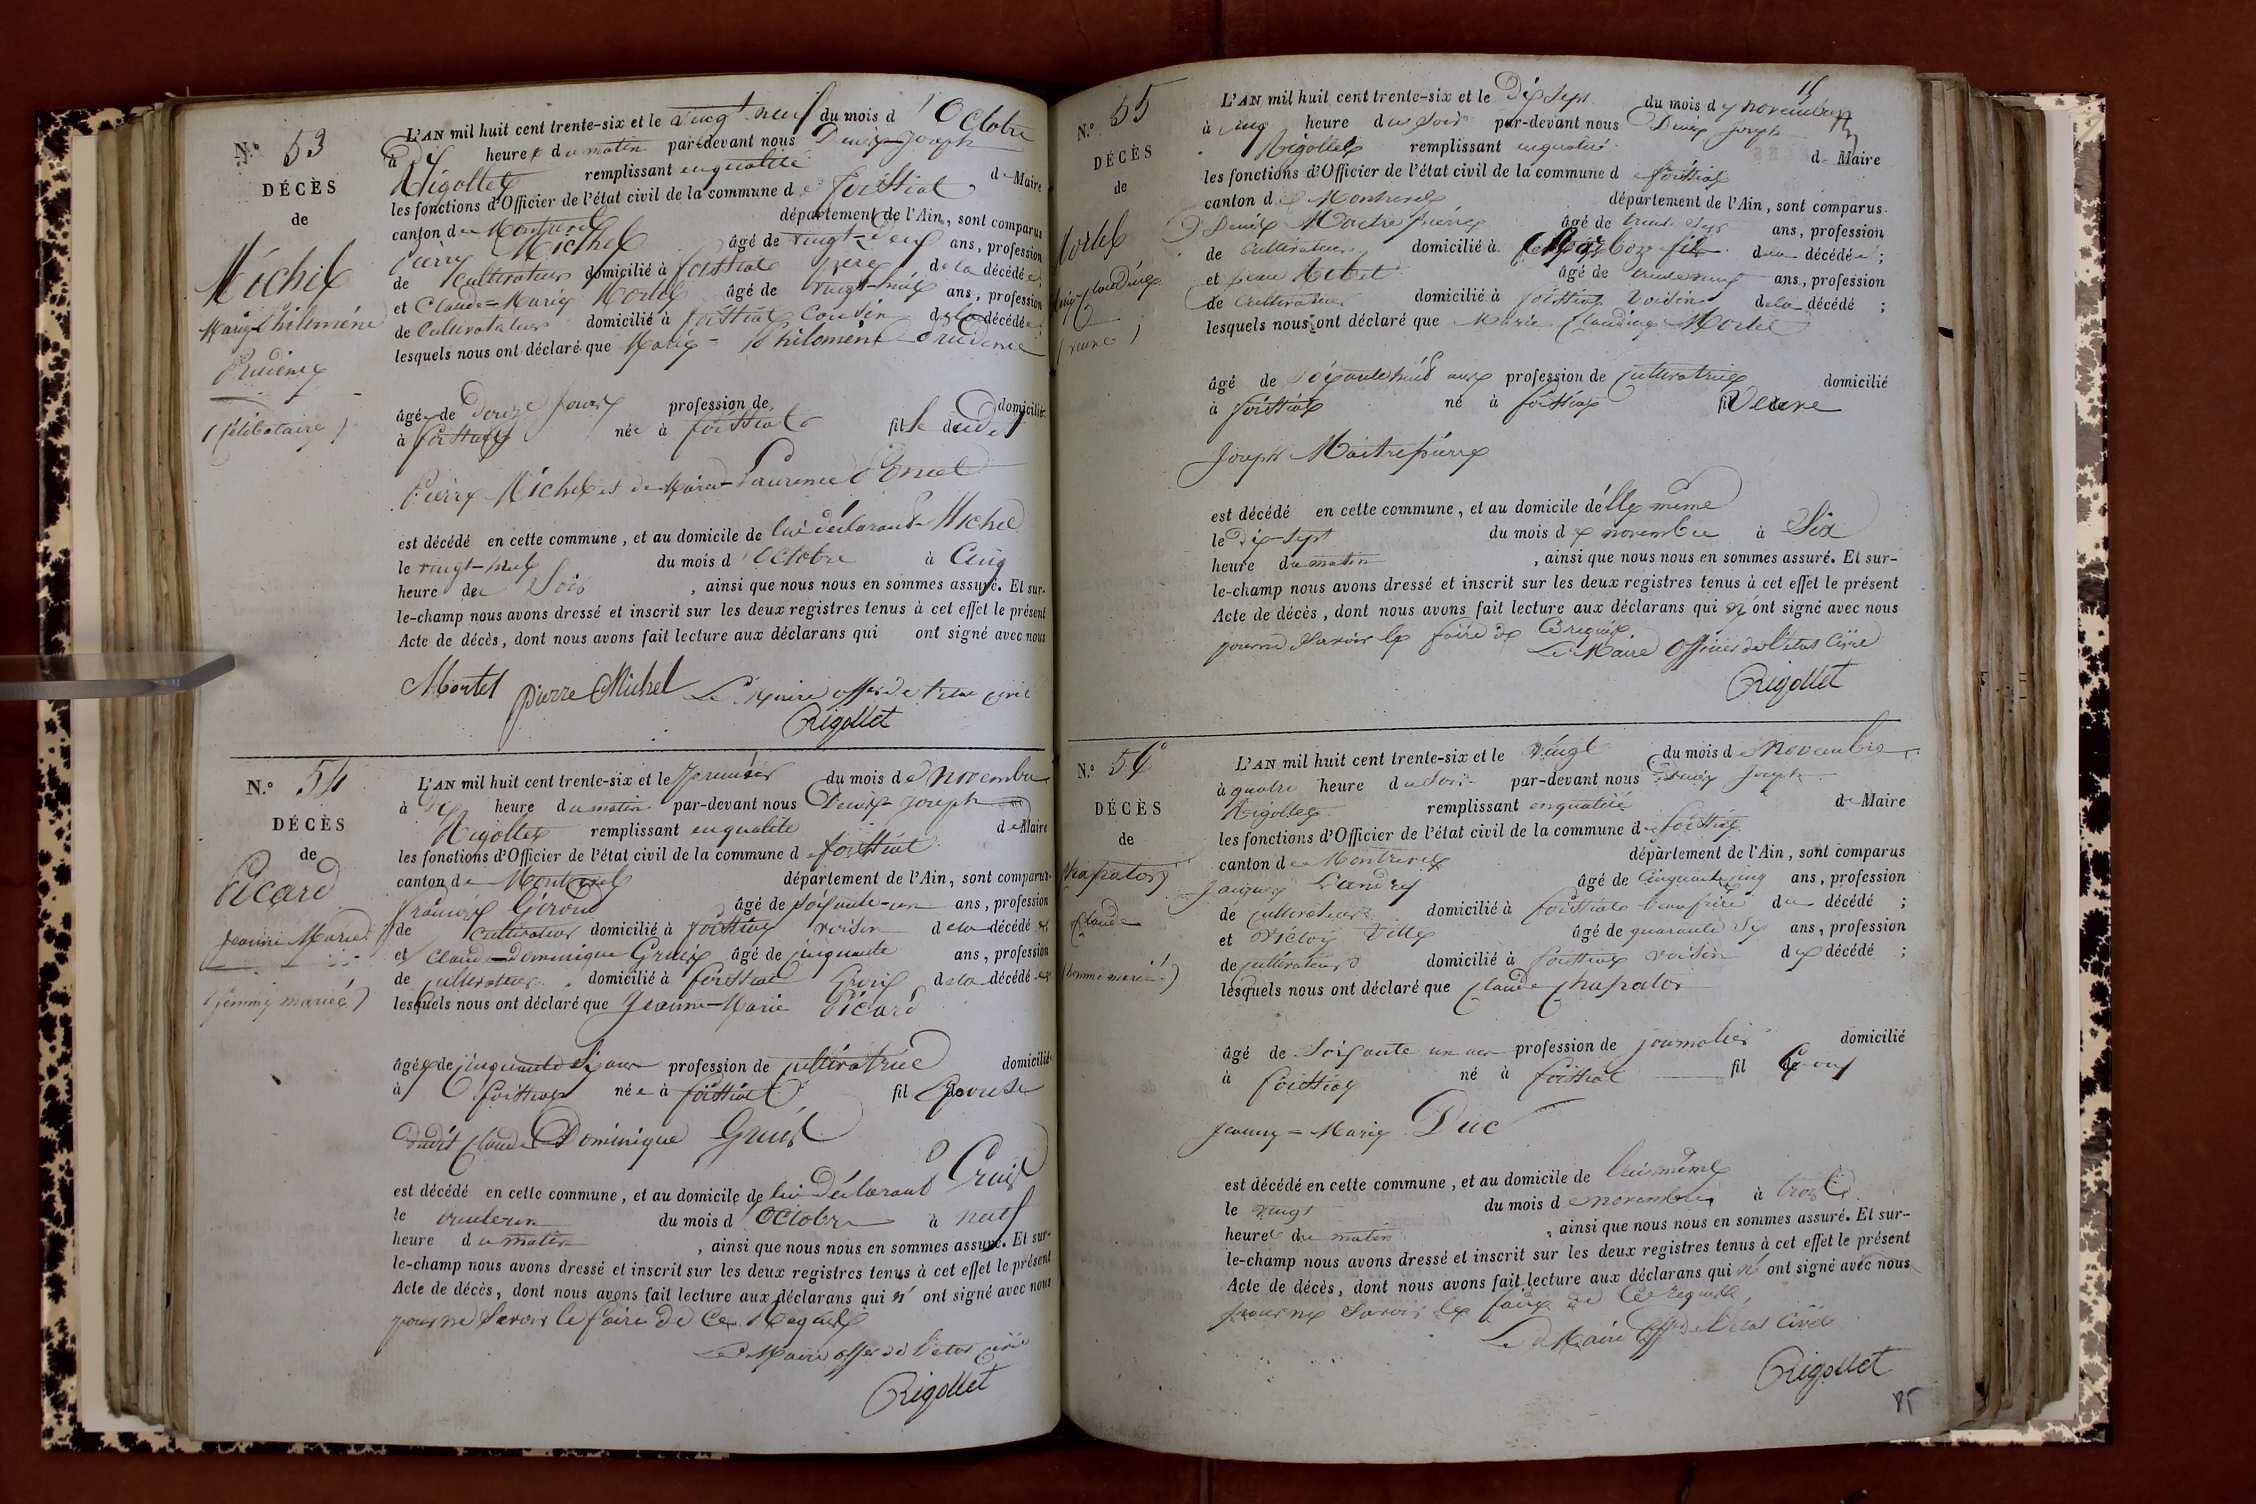 N.° 53
DÉCÈS
de
Michel
Marie Philomène
Prudence
(Célibataire)
L'AN mil huit cent trente-six et le vingt-neuf du mois d'Octobre
à dix heures du matin par-devant nous Denis-Joseph
Rigollet remplissant en qualité de Maire
les fonctions d'Officier de l'état civil de la commune de foissiat,
canton de Montrevel département de l'Ain, sont comparus
Pierre Michel âgé de vingt-deux ans, profession
de Cultivateur domicilié à foissiat père de la décédée;
et Claude-Marie Mortel âgé de ans, profession
de Cultivateur domicilié à foissiat Cousin de la décédée;
lesquels nous ont déclaré que Marie-Philomène Prudence
âgée de Douze Jours profession de domiciliée
à foissiat née à foissiat fille dudit
Pierre Michel et de Marie-Laurence
est décédé en cette commune, et au domicile de lui déclarant Michel
le vingt-huit du mois d'Octobre à Cinq
heure du Soir, ainsi que nous nous en sommes assuré. Et sur-
le-champ nous avons dressé et inscrit sur les deux registres tenus à cet effet le présent
Acte de décès, dont nous avons fait lecture aux déclarans qui ont signé avec nous
Mortel Pierre Michel Le Maire offier de l'état civil
Rigollet
N.° 54
DÉCÈS
de
Picard
Jeanne Marie
(femme mariée)
L'AN mil huit cent trente-six et le premier du mois de novembre
à dix heure du matin par-devant nous Denis-Joseph
Rigollet remplissant en qualité de Maire
les fonctions d'Officier de l'état civil de la commune de foissiat
canton de Montrevel département de l'Ain, sont comparus
François Giroud âgé de soixante-un ans, profession
de Cultivateur domicilié à foissiat voisin de la décédée
et Claude-Dominique Gruis âgé de cinquante ans, profession
de cultivateur domicilié à foissiat de la décédée
lesquels nous ont déclaré que Jeanne-Marie Picard
âgée de cinquante six ans profession de cultivatrice domiciliée
à foissiat née à foissiat fil Epouse
dudit Claude Dominique Gruis
est décédé en cette commune, et au domicile de lui déclarant Gruis
le trente un du mois d'Octobre à neuf
heure du matin, ainsi que nous nous en sommes assuré. Et sur-
le-champ nous avons dressé et inscrit sur les deux registres tenus à cet effet le présent
Acte de décès, dont nous avons fait lecture aux déclarans qui n'ont signé avec nous
pour ne Savoir le faire de ce Requis
Le Maire offier de l'état civil
Rigollet
N.° 55
DÉCÈS
de
Mortel
Marie-Claudine
(veuve)
L'AN mil huit cent trente-six et le Dix Sept du mois de novembre
à cinq heure du Soir par-devant nous Denis Joseph
Rigollet remplissant en qualité de Maire
les fonctions d'Officier de l'état civil de la commune de foissiat
canton de Montrevel département de l'Ain, sont comparus
Denis Maitrepierre âgé de trente Sept ans, profession
de Cultivateur domicilié à Marboz fils de la décédée;
et Jean âgé de trente neuf ans, profession
de Cultivateur domicilié à foissiat voisin de la décédé;
lesquels nous ont déclaré que Marie Claudine Mortel
âgé de soixante huit ans profession de cultivatrice domicilié
à foissiat né à foissiat fil Veuve
Joseph Maitrepierre
est décédé en cette commune, et au domicile d'elle même
le Dix-Sept du mois de novembre à Six
heure du matin, ainsi que nous nous en sommes assuré. Et sur-
le-champ nous avons dressé et inscrit sur les deux registres tenus à cet effet le présent
Acte de décès, dont nous avons fait lecture aux déclarans qui n'ont signé avec nous
pour ne Savoir le faire de Ce requis
Le Maire Officier de l'état Civil
Rigollet
N.° 56
DÉCÈS
de
Chapalor
Claude
(homme marié)
L'AN mil huit cent trente-six et le vingt du mois de Novembre
à quatre heure du Soir par-devant nous Denis Joseph
Rigollet remplissant en qualité de Maire
les fonctions d'Officier de l'état civil de la commune de foissiat
canton de Montrevel département de l'Ain, sont comparus
Jacques âgé de Cinquante cinq ans, profession
de Cultivateur domicilié à foissiat beau frère du décédé;
et Victor âgé de quarante Six ans, profession
de cultivateur domicilié à foissiat voisin de décédé;
lesquels nous ont déclaré que Claude Chapalor
âgé de Soixante un ans profession de journalier domicilié
à foissiat né à foissiat fil Epoux
Jeanne-Marie Duc
est décédé en cette commune, et au domicile de lui même
le vingt du mois de novembre à trois
heures du matin, ainsi que nous nous en sommes assuré. Et sur-
le-champ nous avons dressé et inscrit sur les deux registres tenus à cet effet le présent
Acte de décès, dont nous avons fait lecture aux déclarans qui n'ont signé avec nous
pour ne Savoir le faire de Ce requis
Le Maire Off de l'état Civil
Rigollet